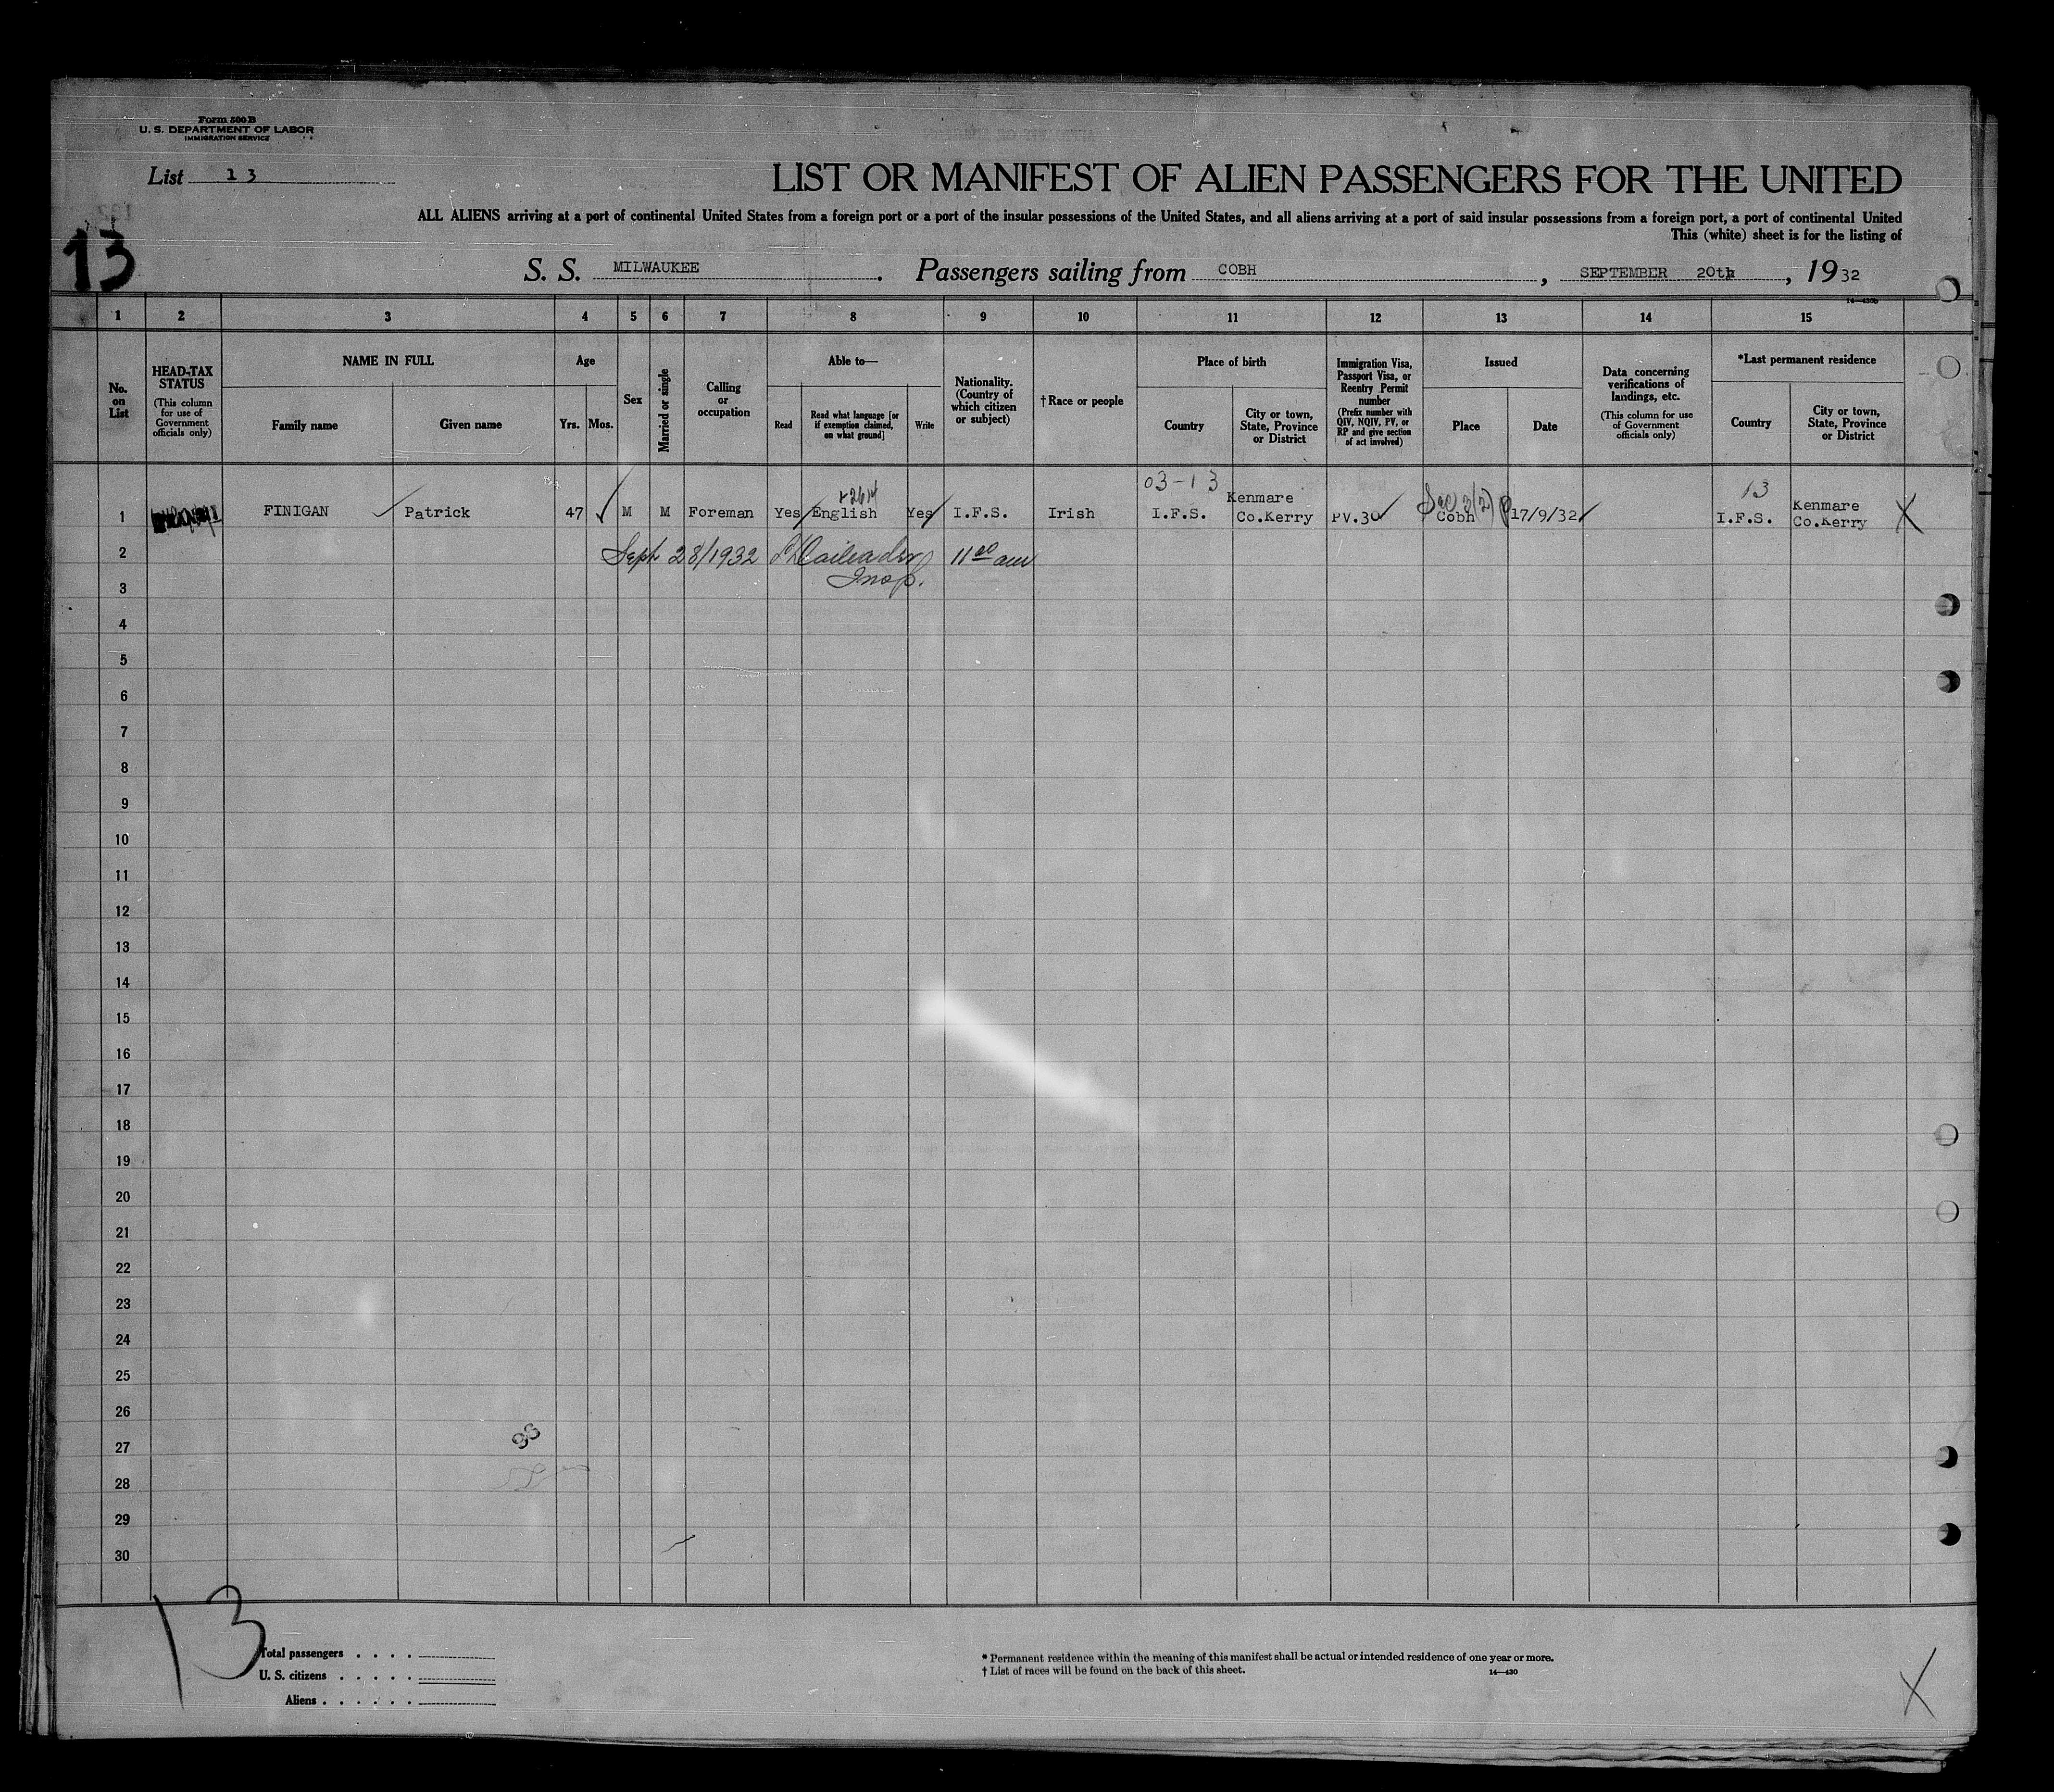 Form 500 B
U. S. DEPARTMENT OF LABOR
IMMIGRATION SERVICE
List 13
LIST OR MANIFEST OF ALIEN PASSENGERS FOR THE UNITED
ALL ALIENS arriving at a port of continental United States from a foreign port or a port of the insular possessions of the United States, and all aliens arriving at a port of said insular possessions from a foreign port, a port of continental United
This (white) sheet is for the listing of
13
S. S. MILWAUKEE. Passengers sailing from COBH, SEPTEMBER 20th, 1932
14—430b
1 2 3 4 5 6 7 8 9 10 11 12 13 14 15
No. on List
HEAD-TAX STATUS
(This column for use of Government officials only)
NAME IN FULL
Family name
Given name
Age
Yrs.
Mos.
Sex
Married or single
Calling or occupation
Able to—
Read
Read what language [or if exemption claimed, on what ground]
Write
Nationality. (Country of which citizen or subject)
†Race or people
Place of birth
Country
City or town, State, Province or District
Immigration Visa, Passport Visa, or Reentry Permit number
(Prefix number with QIV, NQIV, PV, or RP and give section of act involved)
Issued
Place
Date
Data concerning verifications of landings, etc.
(This column for use of Government officials only)
*Last permanent residence
Country
City or town, State, Province or District
03-13
Sec 3(2)
13
1 FINIGAN Patrick 47 M M Foreman Yes English Yes I.F.S. Irish I.F.S. Kenmare Co.Kerry PV.30 Cobh 17/9/32 I.F.S. Kenmare Co.Kerry X
2 Sept 28/1932 11 00 am
Insp.
3
4
5
6
7
8
9
10
11
12
13
14
15
16
17
18
19
20
21
22
23
24
25
26
27
28
29
30
13
Total passengers
U. S. citizens
Aliens
* Permanent residence within the meaning of this manifest shall be actual or intended residence of one year or more.
† List of races will be found on the back of this sheet.
14—430
X